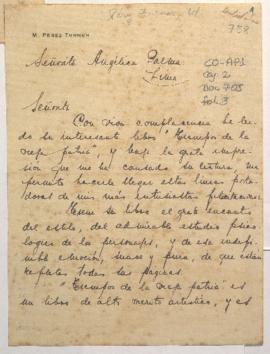 M. PEREZ TURNER
758
Señorita Angélica Palma
Lima
CO-AP1
Caj. 2
Doc 705
fol. 3
Señorita
Con viva complacencia he leí-
do su interesante libro "Tiempos de la
vieja patria" y bajo la grata impre-
sión que me ha causado su lectura, me
permito hacerle llegar estas líneas porta-
doras de mis más entusiastas felicitaciones.
Tiene su libro el gran encanto
del estilo, del admirable estudio psico-
lógico de los personajes, y de esa indefi-
nible emoción, suave y pura, de que están
repletas todas sus páginas.
"Tiempos de la vieja patria" es
un libro de alto mérito artístico, y es